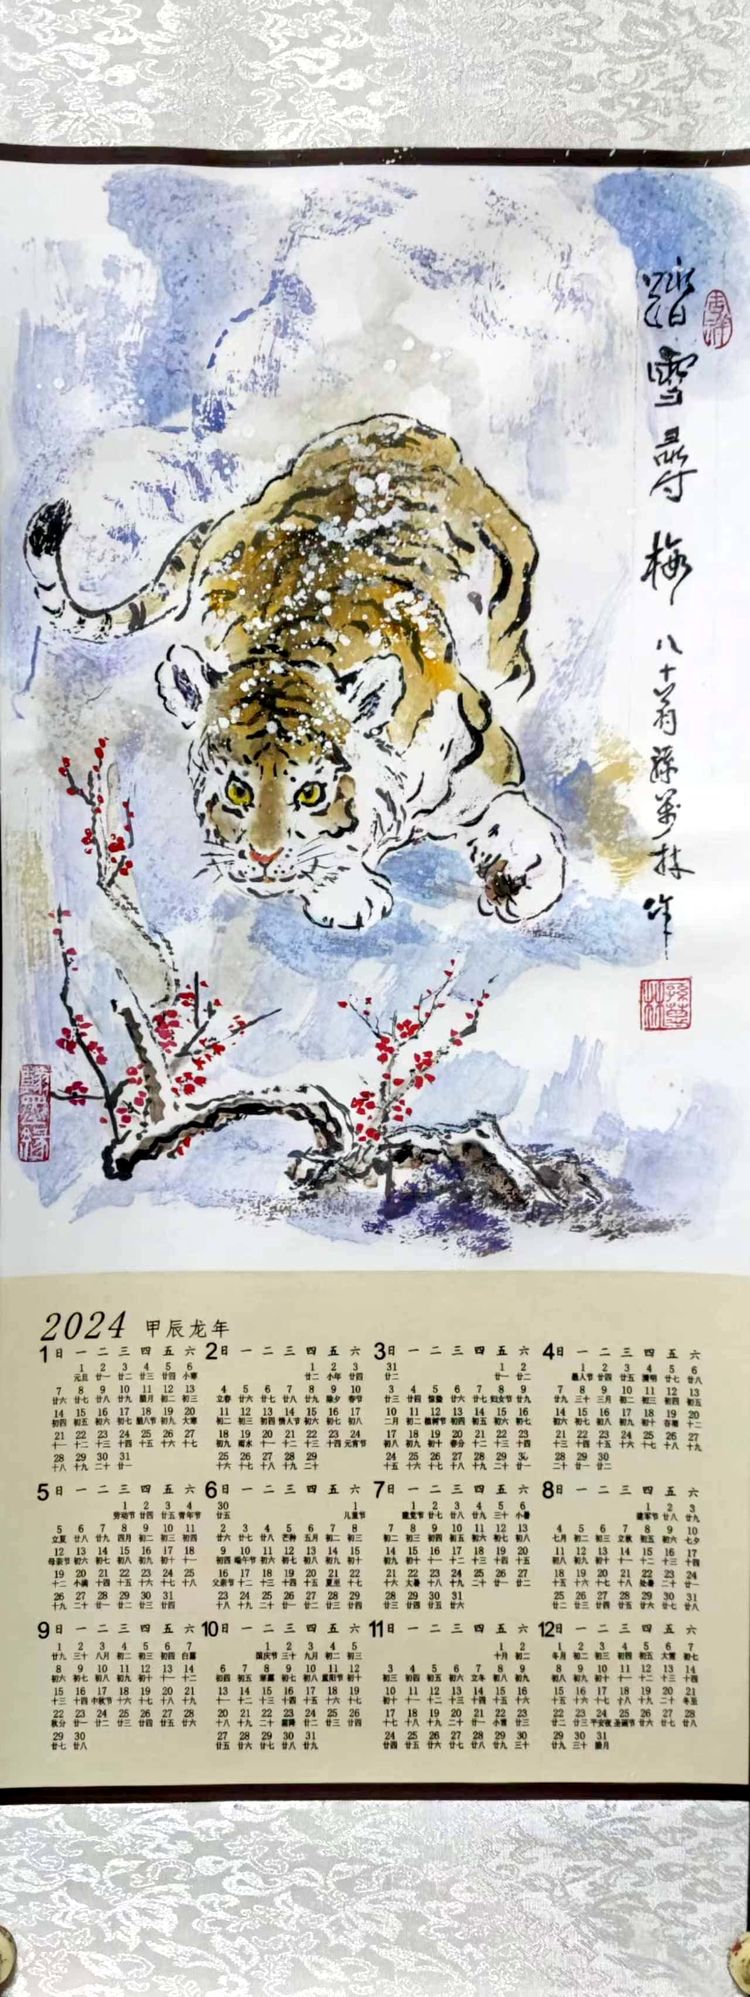 踏雪尋梅
八十翁孫萬林作
孫萬林
2024 甲辰龙年
1 日 一 二 三 四 五 六
1 2 3 4 5 6
元旦 廿一 廿二 廿三 廿四 小寒
7 8 9 10 11 12 13
廿六 廿七 廿八 廿九 腊月 初二 初三
14 15 16 17 18 19 20
初四 初五 初六 初七 腊八节 初九 大寒
21 22 23 24 25 26 27
十一 十二 十三 十四 十五 十六 十七
28 29 30 31
十八 十九 二十 廿一
2 日 一 二 三 四 五 六
1 2 3
廿二 小年 廿四
4 5 6 7 8 9 10
立春 廿六 廿七 廿八 廿九 除夕 春节
11 12 13 14 15 16 17
初二 初三 初四 情人节 初六 初七 初八
18 19 20 21 22 23 24
初九 雨水 十一 十二 十三 十四 元宵节
25 26 27 28 29
十六 十七 十八 十九 二十
3 日 一 二 三 四 五 六
31 1 2
廿二 廿一 廿二
3 4 5 6 7 8 9
廿三 廿四 惊蛰 廿六 廿七 妇女节 廿九
10 11 12 13 14 15 16
二月 初二 植树节 初四 初五 初六 初七
17 18 19 20 21 22 23
初八 初九 初十 春分 十二 十三 十四
24 25 26 27 28 29 30
十五 十六 十七 十八 十九 二十 廿一
4 日 一 二 三 四 五 六
1 2 3 4 5 6
愚人节 廿四 廿五 清明 廿七 廿八
7 8 9 10 11 12 13
廿九 三十 三月 初二 初三 初四 初五
14 15 16 17 18 19 20
初六 初七 初八 初九 初十 谷雨 十二
21 22 23 24 25 26 27
十三 十四 十五 十六 十七 十八 十九
28 29 30
二十 廿一 廿二
5 日 一 二 三 四 五 六
1 2 3 4
劳动节 廿四 廿五 青年节
5 6 7 8 9 10 11
立夏 廿八 廿九 四月 初二 初三 初四
12 13 14 15 16 17 18
母亲节 初六 初七 初八 初九 初十 十一
19 20 21 22 23 24 25
十二 小满 十四 十五 十六 十七 十八
26 27 28 29 30 31
十九 二十 廿一 廿二 廿三 廿四
6 日 一 二 三 四 五 六
30 1
廿五 儿童节
2 3 4 5 6 7 8
廿六 廿七 廿八 芒种 五月 初二 初三
9 10 11 12 13 14 15
初四 端午节 初六 初七 初八 初九 初十
16 17 18 19 20 21 22
父亲节 十二 十三 十四 十五 夏至 十七
23 24 25 26 27 28 29
十八 十九 二十 廿一 廿二 廿三 廿四
7 日 一 二 三 四 五 六
1 2 3 4 5 6
建党节 廿七 廿八 廿九 三十 小暑
7 8 9 10 11 12 13
初二 初三 初四 初五 初六 初七 初八
14 15 16 17 18 19 20
初九 初十 十一 十二 十三 十四 十五
21 22 23 24 25 26 27
十六 大暑 十八 十九 二十 廿一 廿二
28 29 30 31
廿三 廿四 廿五 廿六
8 日 一 二 三 四 五 六
1 2 3
建军节 廿八 廿九
4 5 6 7 8 9 10
七月 初二 初三 立秋 初五 初六 七夕
11 12 13 14 15 16 17
初八 初九 初十 十一 十二 十三 十四
18 19 20 21 22 23 24
十五 十六 十七 十八 处暑 二十 廿一
25 26 27 28 29 30 31
廿二 廿三 廿四 廿五 廿六 廿七 廿八
9 日 一 二 三 四 五 六
1 2 3 4 5 6 7
廿九 三十 八月 初二 初三 初四 白露
8 9 10 11 12 13 14
初六 初七 初八 初九 初十 十一 十二
15 16 17 18 19 20 21
十三 十四 中秋节 十六 十七 十八 十九
22 23 24 25 26 27 28
秋分 廿一 廿二 廿三 廿四 廿五 廿六
29 30
廿七 廿八
10 日 一 二 三 四 五 六
1 2 3 4 5
国庆节 三十 九月 初二 初三
6 7 8 9 10 11 12
初四 初五 寒露 初七 初八 重阳节 初十
13 14 15 16 17 18 19
十一 十二 十三 十四 十五 十六 十七
20 21 22 23 24 25 26
十八 十九 二十 霜降 廿二 廿三 廿四
27 28 29 30 31
廿五 廿六 廿七 廿八 廿九
11 日 一 二 三 四 五 六
1 2
十月 初二
3 4 5 6 7 8 9
初三 初四 初五 初六 立冬 初八 初九
10 11 12 13 14 15 16
初十 十一 十二 十三 十四 十五 十六
17 18 19 20 21 22 23
十七 十八 十九 二十 廿一 小雪 廿三
24 25 26 27 28 29 30
廿四 廿五 廿六 廿七 廿八 廿九 三十
12 日 一 二 三 四 五 六
1 2 3 4 5 6 7
冬月 初二 初三 初四 初五 大雪 初七
8 9 10 11 12 13 14
初八 初九 初十 十一 十二 十三 十四
15 16 17 18 19 20 21
十五 十六 十七 十八 十九 二十 冬至
22 23 24 25 26 27 28
廿二 廿三 平安夜 圣诞节 廿六 廿七 廿八
29 30 31
廿九 三十 腊月